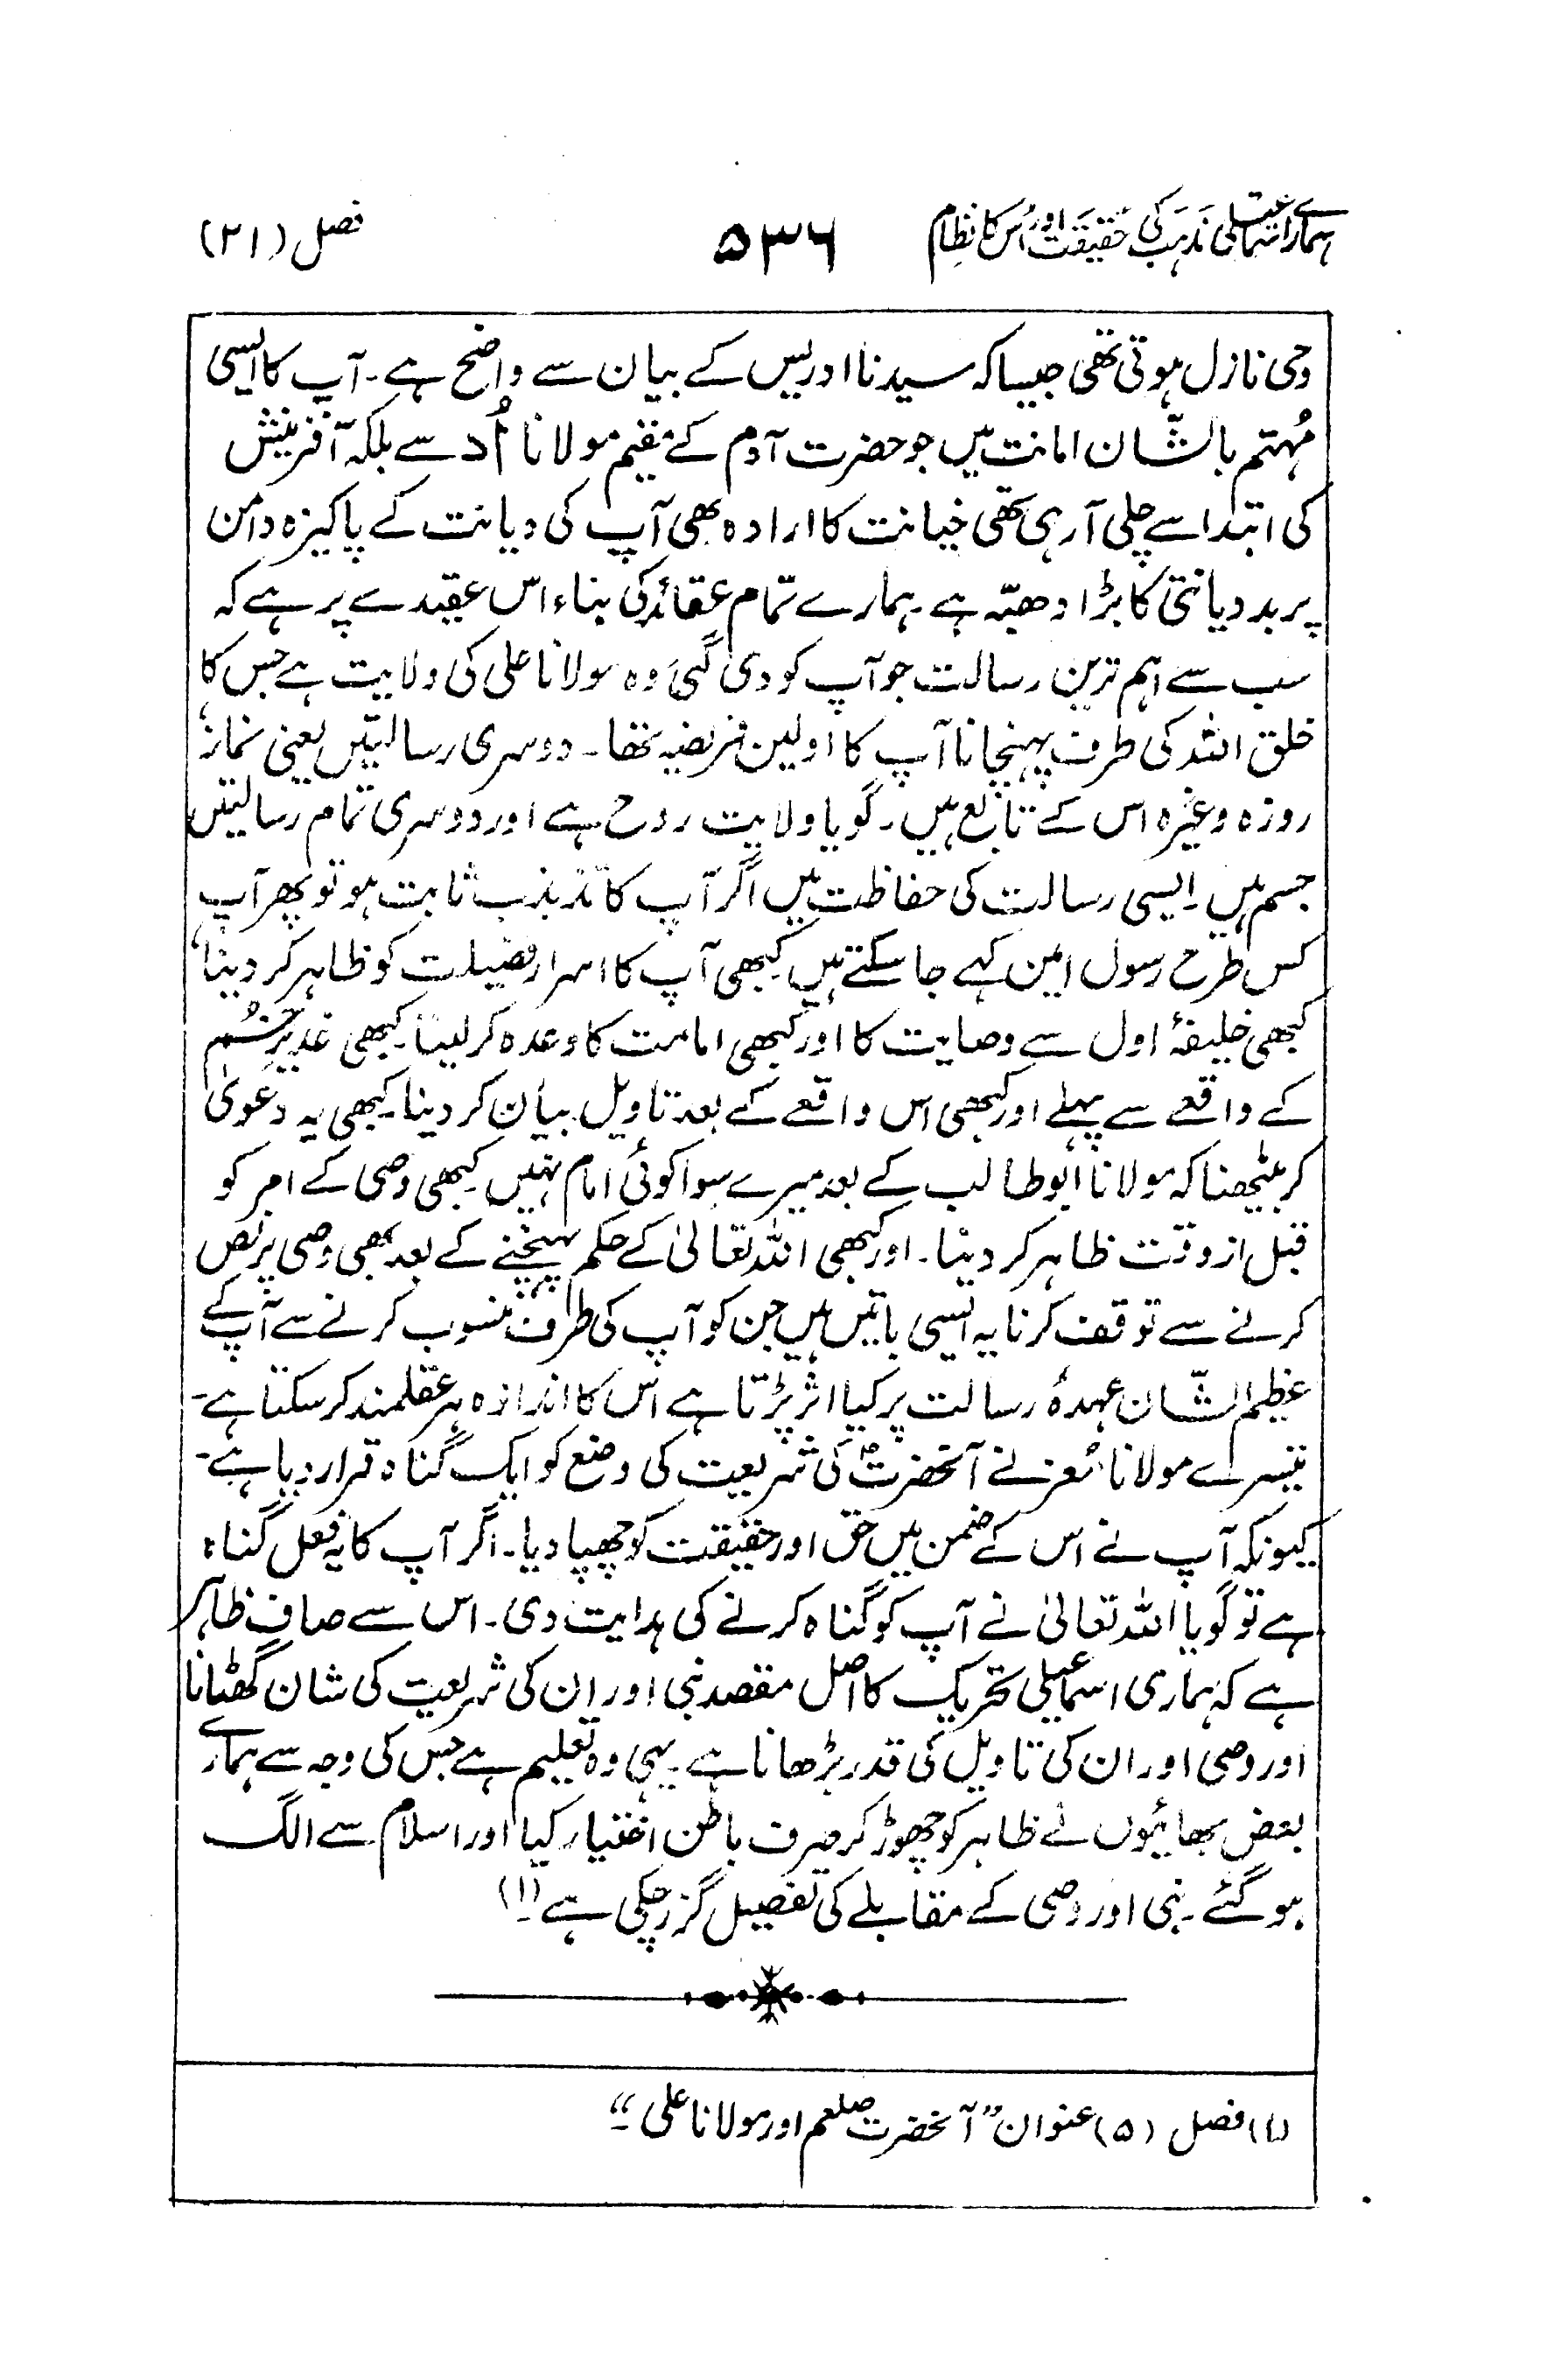 ہمارے اسماعیلی مذہب کی حقیقت اور اُس کا نظام
۵۳۶
فصل (۲۱)
وحی نازل ہوتی تھی جیسا کہ سیدنا ادریس کے بیان سے واضح ہے۔ آپ کا ایسی
مُہتم بالشّان امانت میں جو حضرت آدم کے مقیم مولانا اُد سے بلکہ آفرینش
کی ابتدا سے چلی آرہی تھی خیانت کا ارادہ بھی آپ کی دیانت کے پاکیزہ دامن
پر بددیانتی کا بڑا دھبّہ ہے۔ ہمارے تمام عقائد کی بناء اس عقیدے پر ہے کہ
سب سے اہم ترین رسالت جو آپ کو دی گئی وہ مولانا علی کی ولایت ہے جس کا
خلق اللہ کی طرف پہنچانا آپ کا اولین فریضہ تھا۔ دوسری رسالتیں یعنی نماز
روزہ وغیرہ اس کے تابع ہیں۔ گویا ولایت روح ہے اور دوسری تمام رسالتیں
جسم ہیں۔ ایسی رسالت کی حفاظت میں اگر آپ کا تذبذب ثابت ہو تو پھر آپ
کس طرح رسول امین کہے جا سکتے ہیں۔ کبھی آپ کا اسرار فضیلت کو ظاہر کر دینا،
کبھی خلیفۂ اول سے وصایت کا اور کبھی امامت کا وعدہ کر لینا۔ کبھی غدیر خُم
کے واقعے سے پہلے اور کبھی اس واقعے کے بعد تاویل بیان کر دینا۔ کبھی یہ دعویٰ
کر بیٹھنا کہ مولانا ابوطالب کے بعد میرے سوا کوئی امام نہیں۔ کبھی وصی کے امر کو
قبل از وقت ظاہر کر دینا۔ اور کبھی اللہ تعالیٰ کے حکم پہنچنے کے بعد بھی وصی پر نص
کرنے سے توقف کرنا یہ ایسی باتیں ہیں جن کو آپ کی طرف منسوب کرنے سے آپ کے
عظیم الشّان عہدۂ رسالت پر کیا اثر پڑتا ہے اس کا اندازہ ہر عقلمند کر سکتا ہے۔
تیسرے مولانا مُعز نے آنحضرتؐ کی شریعت کی وضع کو ایک گناہ قرار دیا ہے۔
کیونکہ آپ نے اس کے ضمن میں حق اور حقیقت کو چھپا دیا۔ اگر آپ کا یہ فعل گناہ
ہے تو گویا اللہ تعالیٰ نے آپ کو گناہ کرنے کی ہدایت دی۔ اس سے صاف ظاہر
ہے کہ ہماری اسماعیلی تحریک کا اصل مقصد نبی اور ان کی شریعت کی شان گھٹانا
اور وصی اور ان کی تاویل کی قدر بڑھانا ہے۔ یہی وہ تعلیم ہے جس کی وجہ سے ہمارے
بعض بھائیوں نے ظاہر کو چھوڑ کر صرف باطن اختیار کیا اور اسلام سے الگ
ہو گئے۔ نبی اور وصی کے مقابلے کی تفصیل گزر چکی ہے۔(۱)
(۱) فصل (۵) عنوان ”آنحضرت صلعم اور مولانا علی“۔